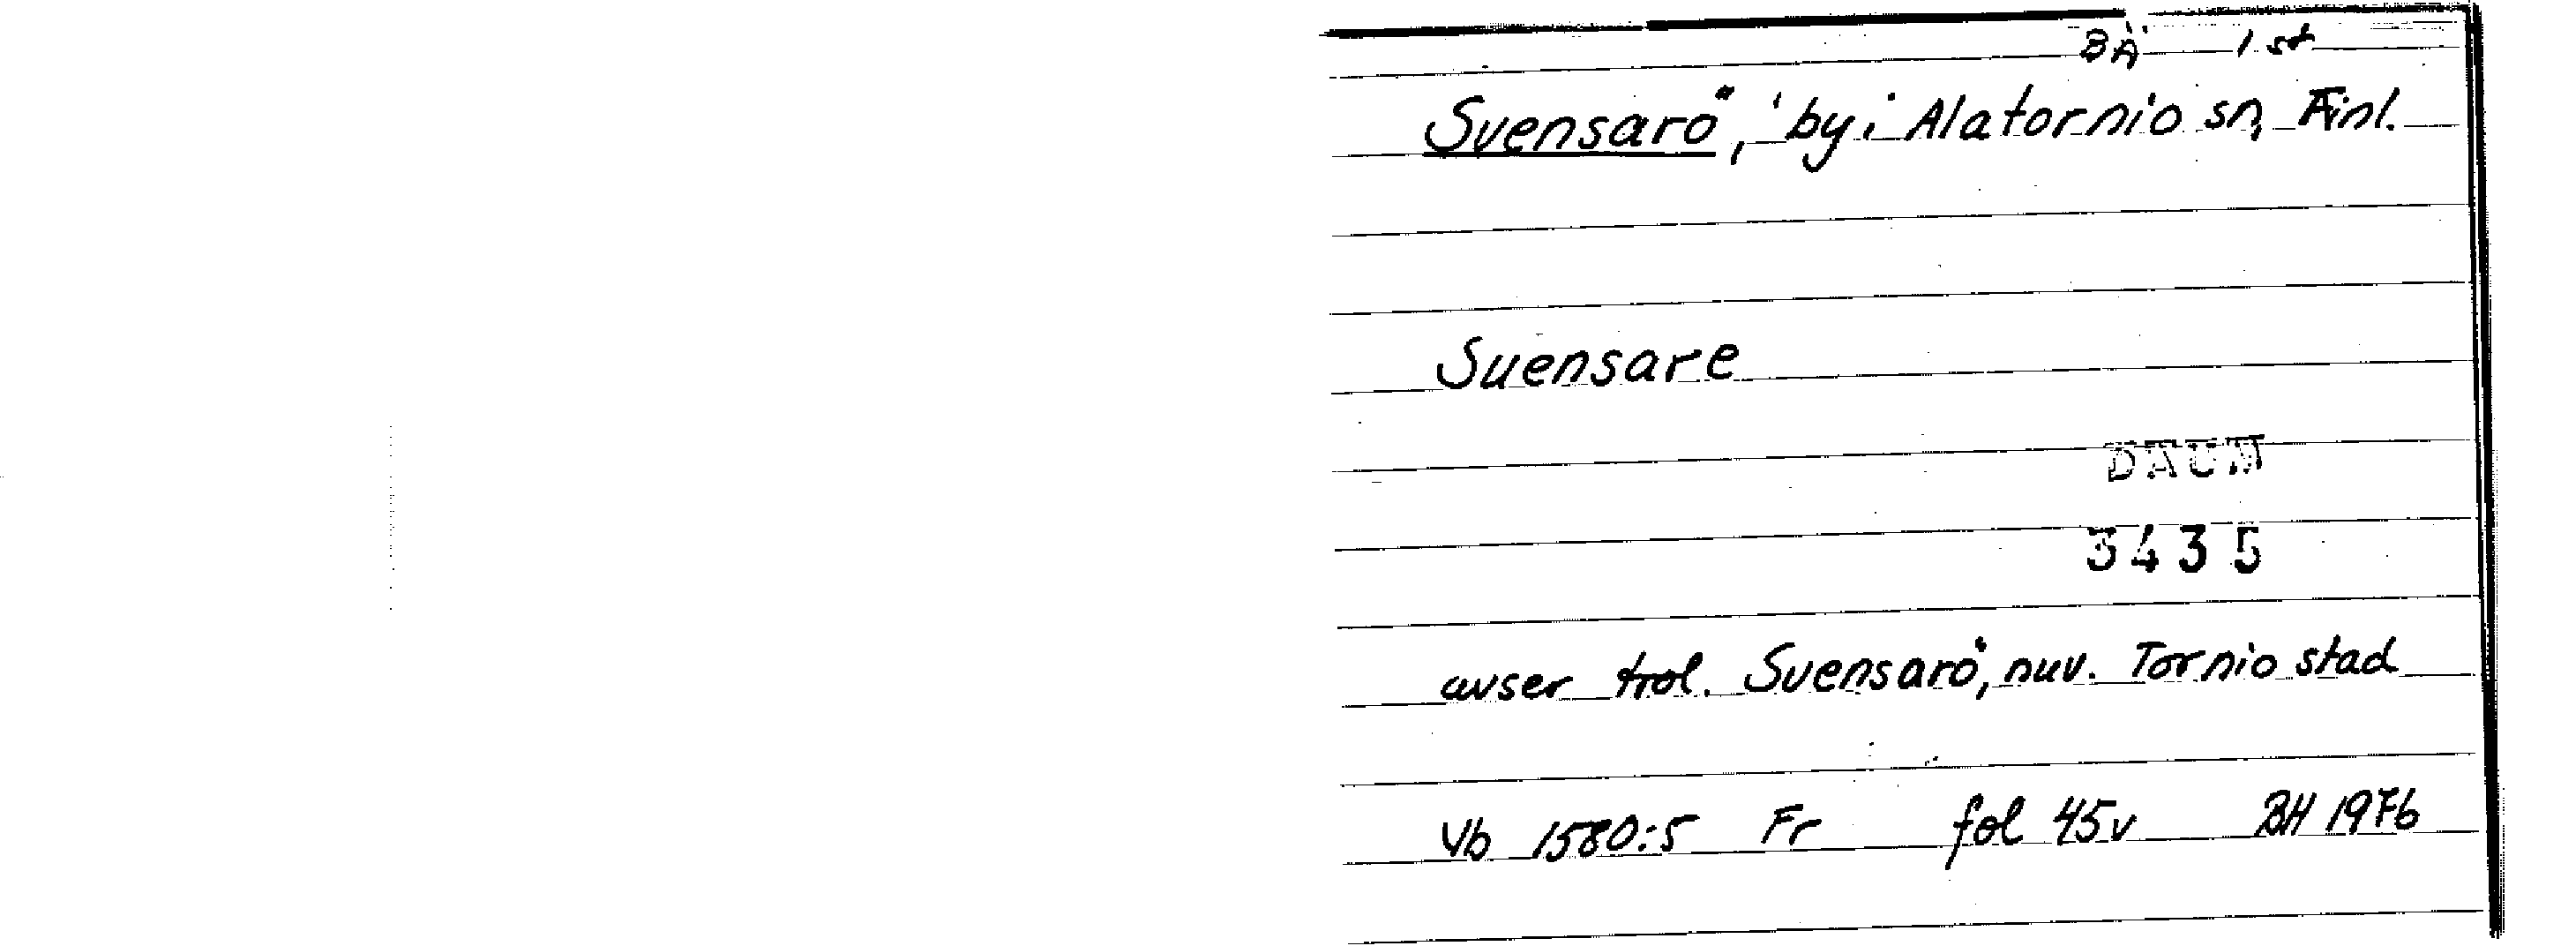 BÄ 1 st
Svensarö, by i Alatornio sn, Finl.
Suensare
DAUM
3435
avser trol. Svensarö, nuv. Tornio stad
Vb 1580:5 Fr fol 45v BH 1976